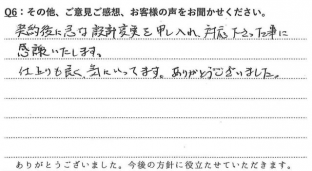 Q6：その他、ご意見ご感想、お客様の声をお聞かせください。
契約後に急な設計変更を申し入れ、対応下さった事に
感謝いたします。
仕上りも良く、気にいってます。ありがとうございました。
ありがとうございました。今後の方針に役立たせていただきます。